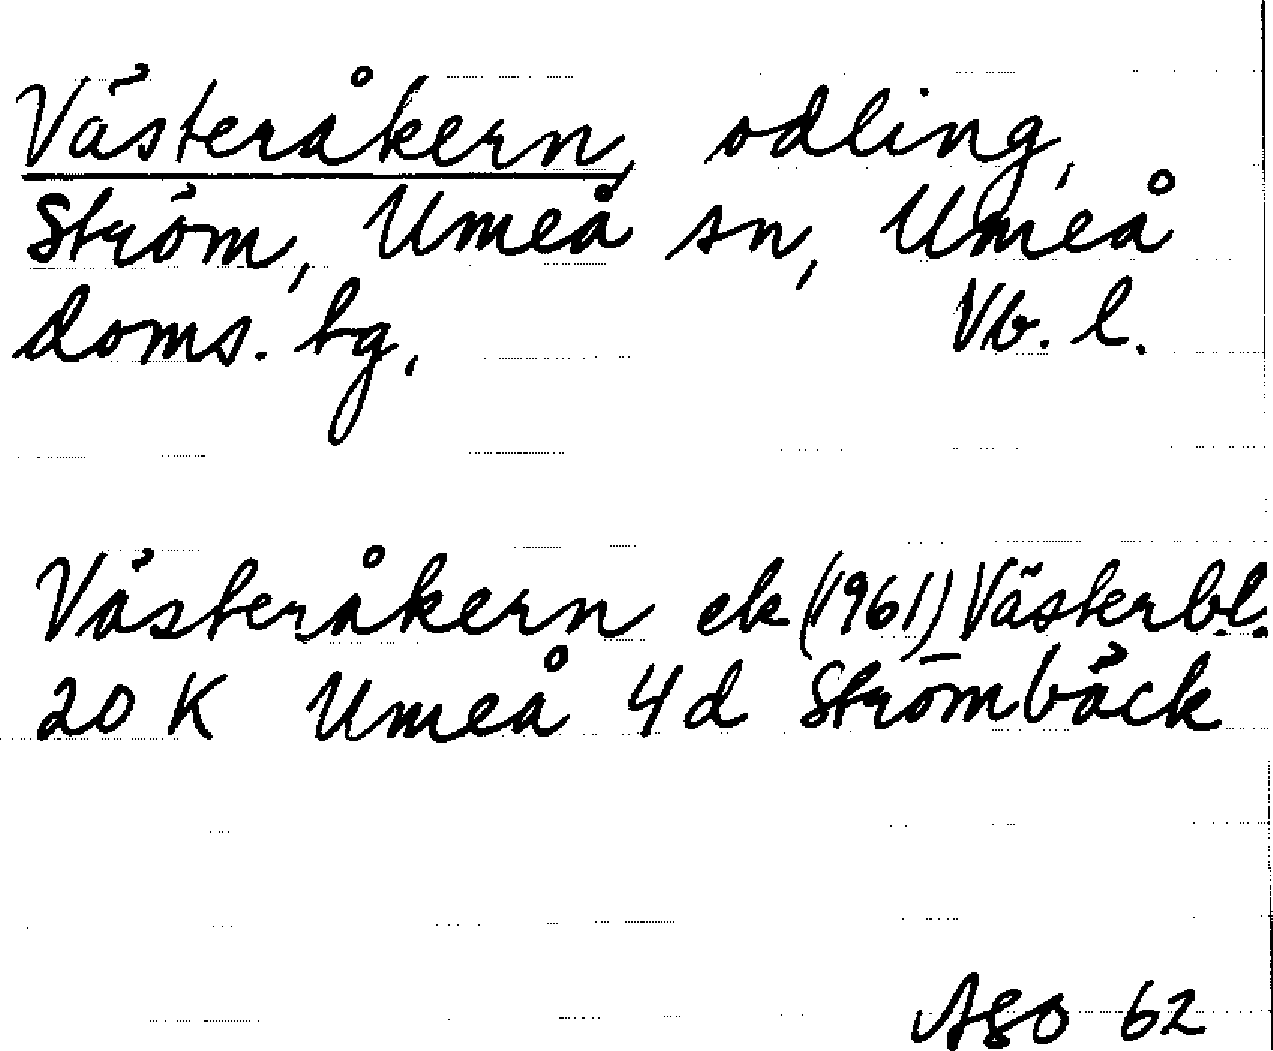 Västeråkern, odling,
Ström, Umeå sn, Umeå
doms. hg. Vb. l.
Västeråkern ek (1961) Västerbl.
20 K Umeå 4d Strömbäck
ASO 62